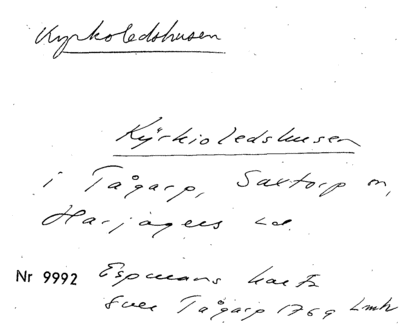 Kyrkoledshusen
Kÿrkioledshusen
i Tågarp, Saxtorp sn,
Harjagers hd.
Nr 9992 Espmans karta
över Tågarp 1769 Lmk